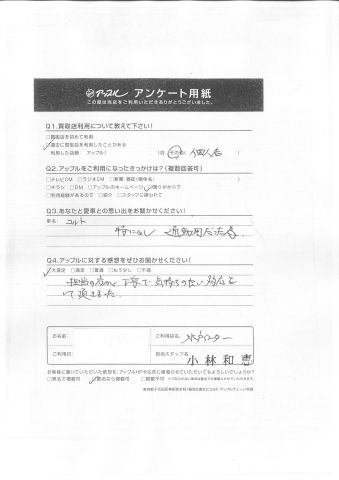 アップル アンケート用紙
この度は当店をご利用いただきありがとうございました。
Q1.買取店利用について教えて下さい!
□買取店を初めて利用
□過去に買取店を利用したことがある
利用した店舗: アップル( 店 その他: 個人店 )
Q2.アップルをご利用になったきっかけは?(複数回答可)
□テレビCM □ラジオCM □新聞・雑誌(媒体名/ )
□チラシ □DM □アップルのホームページ □通りがかりで
□利用経験があるので □紹介 □スタッフに誘われて
Q3.あなたと愛車との思い出をお聞かせください!
車名: コルト
特になし 通勤用だった為
Q4.アップルに対する感想をぜひお聞かせください!
□大満足 □満足 □普通 □もう少し □不満
担当の方が 丁寧で 気持ちのよい 対応を
して頂きました。
お名前
ご利用店名: 水戸インター
ご利用日
担当スタッフ名 小林和恵
お客様に書いていただいた感想を、アップルHPや広告に掲載させていただいてもよろしいでしょうか?
□実名で掲載可 □匿名なら掲載可 □掲載不可